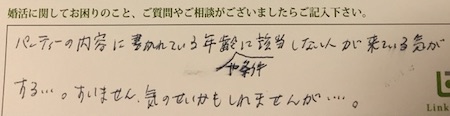 婚活に関してお困りのこと、ご質問やご相談がございましたらご記入下さい。
パーティーの内容に書かれている年齢や条件に該当しない人が来ている気が
する…。すいません、気のせいかもしれませんが…。
Link